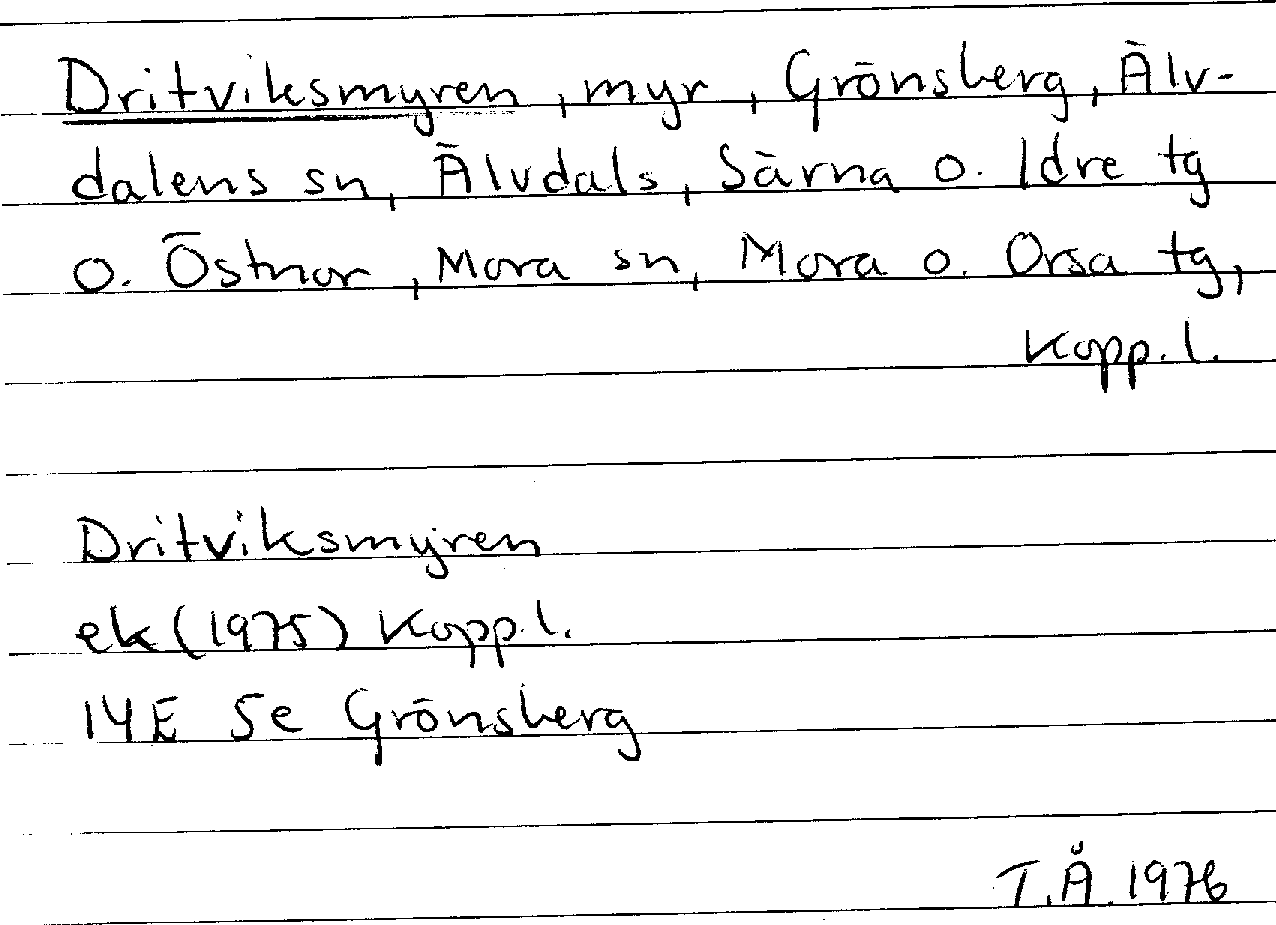 Dritviksmyren, myr, Grönsberg, Älv-
dalens sn, Älvdals, Särna o. Idre tg
o. Östnor, Mora sn, Mora o. Orsa tg,
Kopp. l.
Dritviksmyren
ek (1975) Kopp. l.
14E 5e Grönsberg
T.Å. 1976